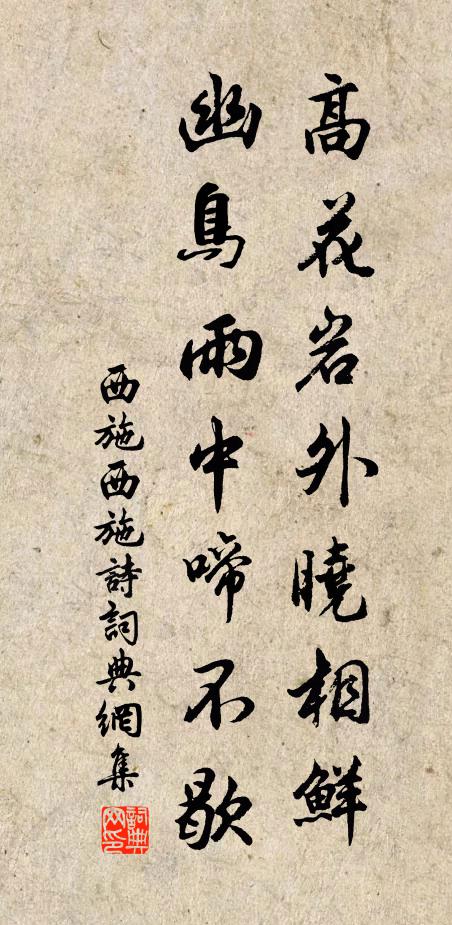 高花岩外曉相鮮
幽鳥雨中啼不歇
西施西施詩詞典網集
詞典網印